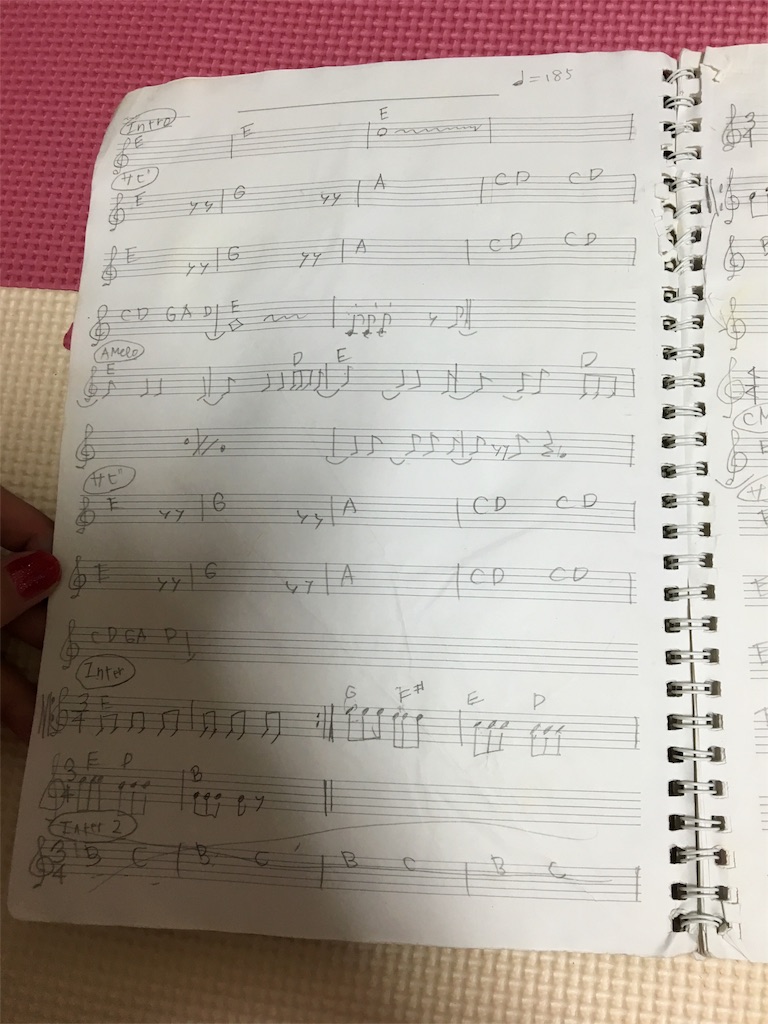 ♩=185
Intro
E E E
サビ'
E G A C D C D
E G A C D C D
C D G A D E
A Melo
E D E D
サビ"
E G A C D C D
E G A C D C D
C D G A D
Inter
3/4 E G F# E D
3/4 E D B
Inter 2
3/4 B C B C B C B C